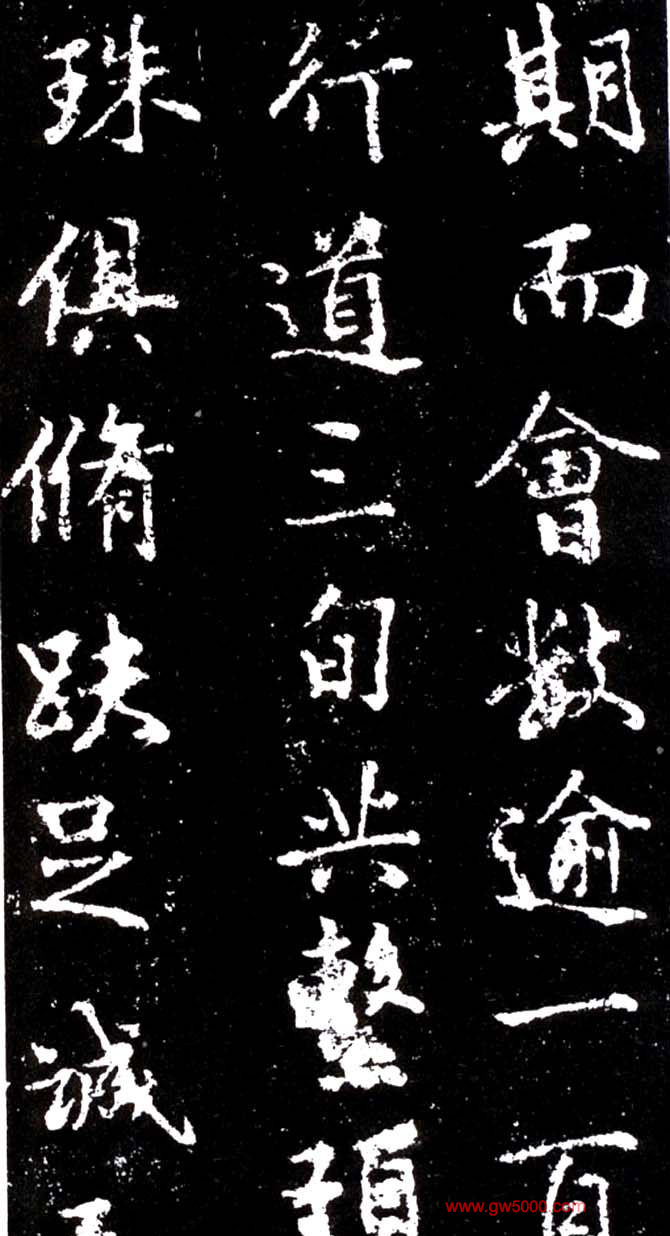 期而會數逾一百
行道三旬共繫頂
珠俱脩趺足誠
www.gw5000.com